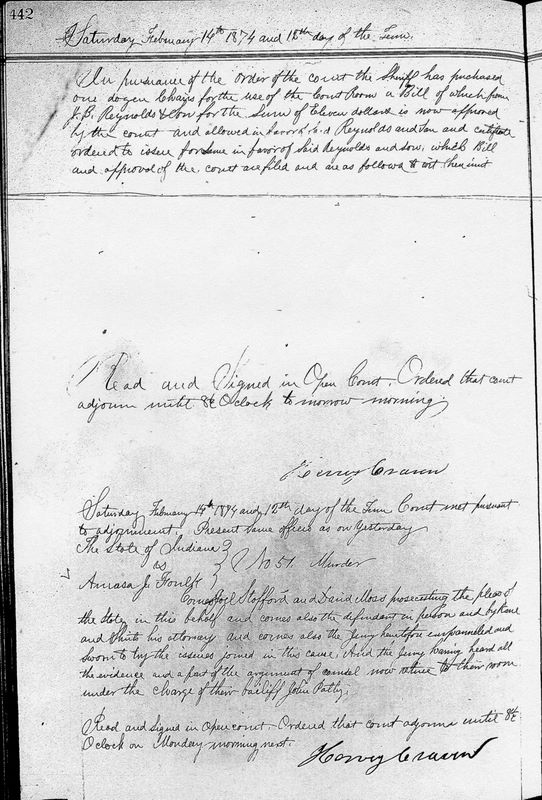 442
Saturday February 14th 1874 and 12th day of the Term.
In pursuance of the order of the court the Sheriff has purchased
one dozen Chairs for the use of the Court Room a Bill of which from
J.B. Reynolds & Son for the Sum of Eleven dollars is now approved
by the court and allowed in favor of said Reynolds and Son and certificate
ordered to issue for same in favor of said Reynolds and son, which Bill
and approval of the court are filed and are as follows to wit
Read and Signed in Open Court. Ordered that court
adjourn until 8½ O'clock to morrow morning.
Hervey Craven
Saturday February 14th 1874 and 12th day of the Term Court met pursuant
to adjournment. Present Same officers as on Yesterday
The State of Indiana
vs No 51. Murder
Amasa J. Foulke
Comes Joel Stafford and David Moss prosecuting the pleas of
the State, in this behalf and comes also the defendant in person and by
and his attorney and comes also the Jury heretofore empannelled and
Sworn to try the issues joined in this cause. And the Jury having heard all
the evidence and a part of the argument of counsel now retire to their room
under the charge of their bailiff John Patty.
Read and signed in open court. Ordered that court adjourn until 8½
Oclock on Monday morning next.
Hervey Craven